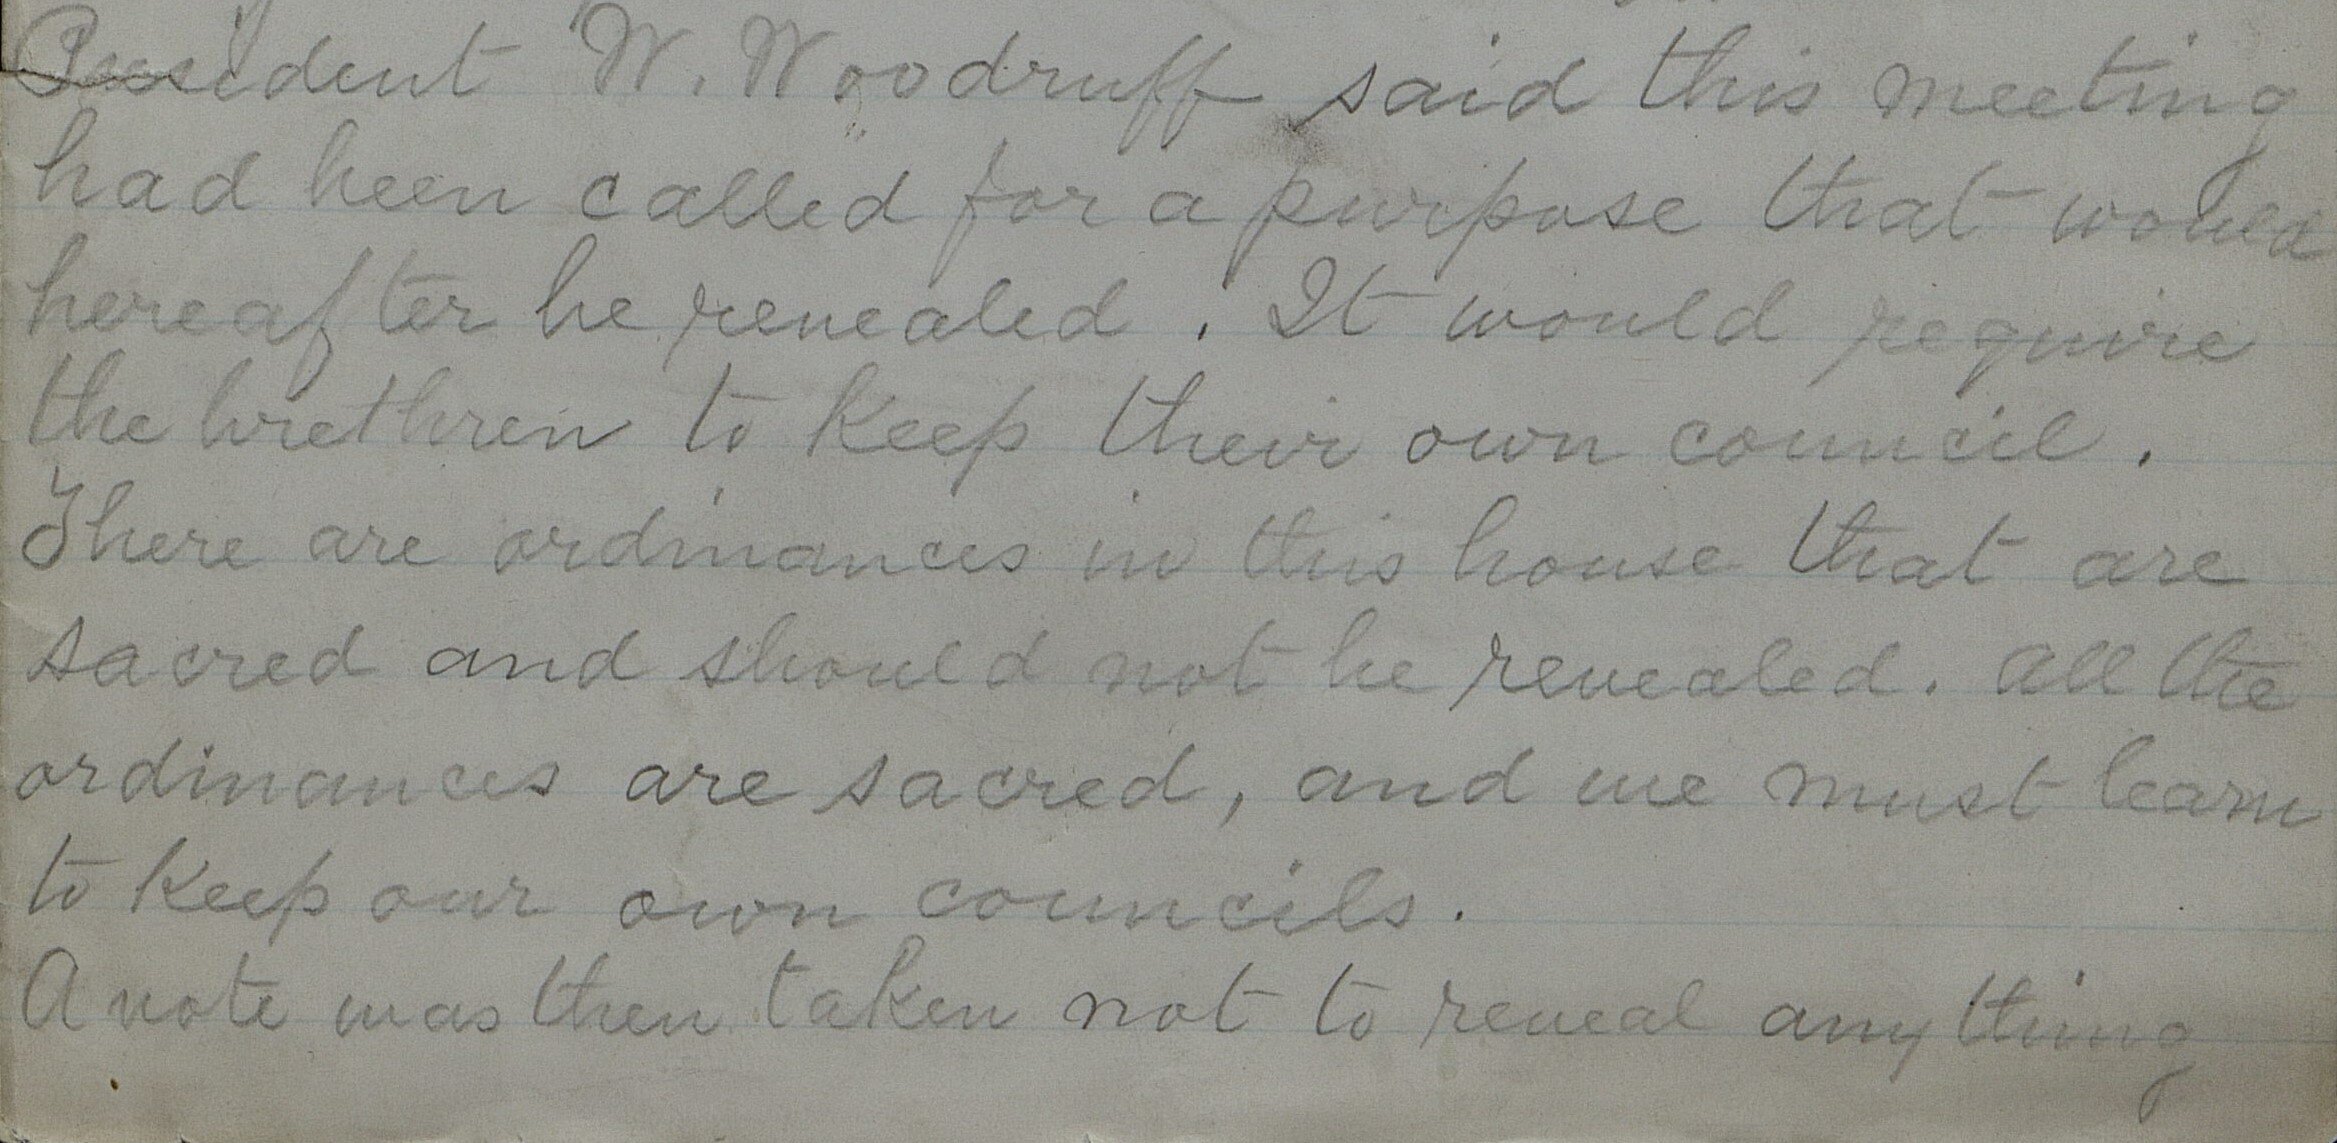 President W. Woodruff said this meeting
had been called for a purpose that would
hereafter be revealed. It would require
the brethren to keep their own council.
There are ordinances in this house that are
sacred and should not be revealed. All the
ordinances are sacred, and we must learn
to keep our own councils.
A vote was then taken not to reveal anything